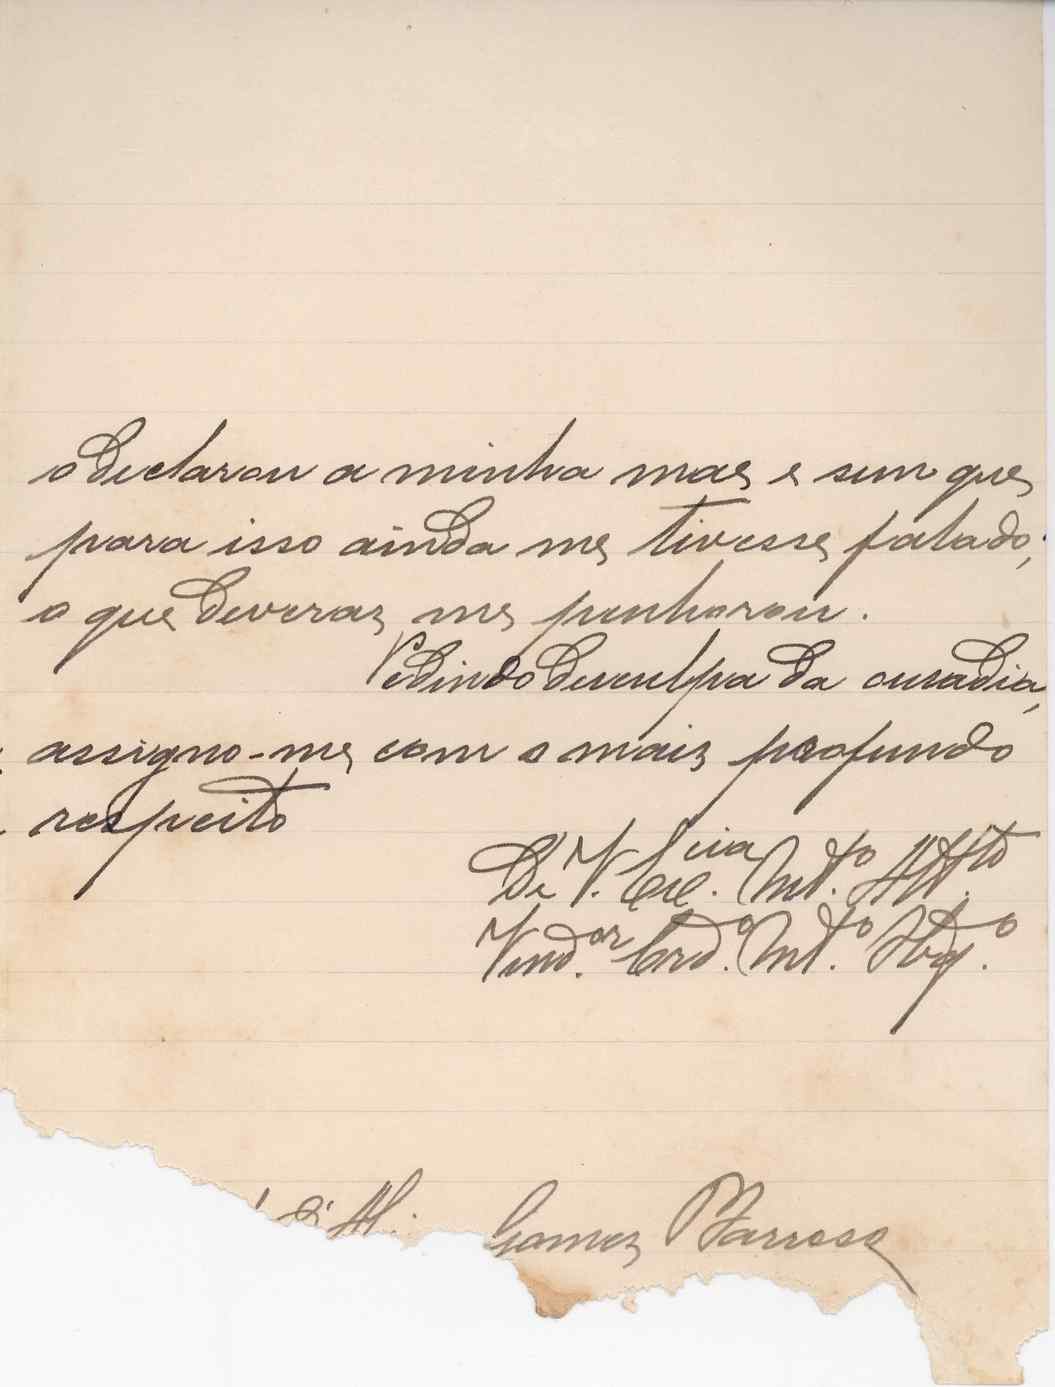 o declarou a minha mae e sem que
para isso ainda me tivesse falado,
o que deveras me penhorou.
Pedindo desculpa da ousadia,
assigno-me, com o mais profundo
respeito
De V. Exc.cia Mt.o Att.to
Vend.or Crd.o Mt.o Obg.o
Gomes Barroso